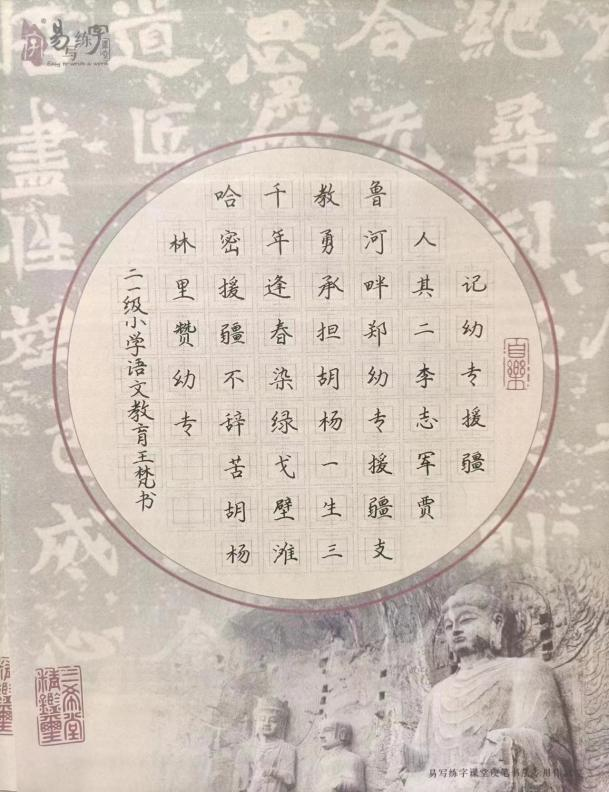 易写与练字
课堂
Easy to write a word
记幼专援疆
人其二李志军贾
鲁河畔郑幼专援疆支
教勇承担胡杨一生三
千年逢春染绿戈壁滩
哈密援疆不辞苦胡杨
林里赞幼专
二一级小学语文教育王梵书
三希堂
精鑑璽
易写练字课堂硬笔书法专用